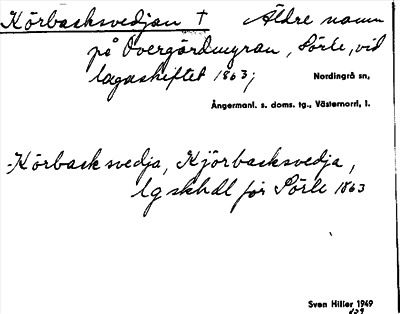 Körbacksvedjan † Äldre namn
på Övergårdmyran, Sörle, vid
lagaskiftet 1863;
Nordingrå sn,
Ångermanl. s. doms. tg., Västernorrl, l.
-Körbacksvedja, Kjörbacksvedja,
lgskhdl för Sörle 1863
Sven Hiller 1949